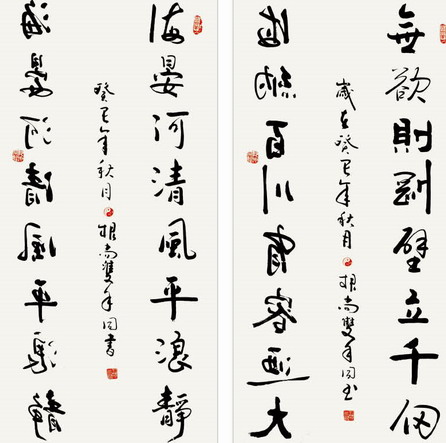 無欲則剛壁立千仞
歲在癸巳年秋月根尚雙手同書
海納百川有容迺大
海晏河清風平浪靜
癸巳年秋月根尚雙手同書
海晏河清風平浪靜